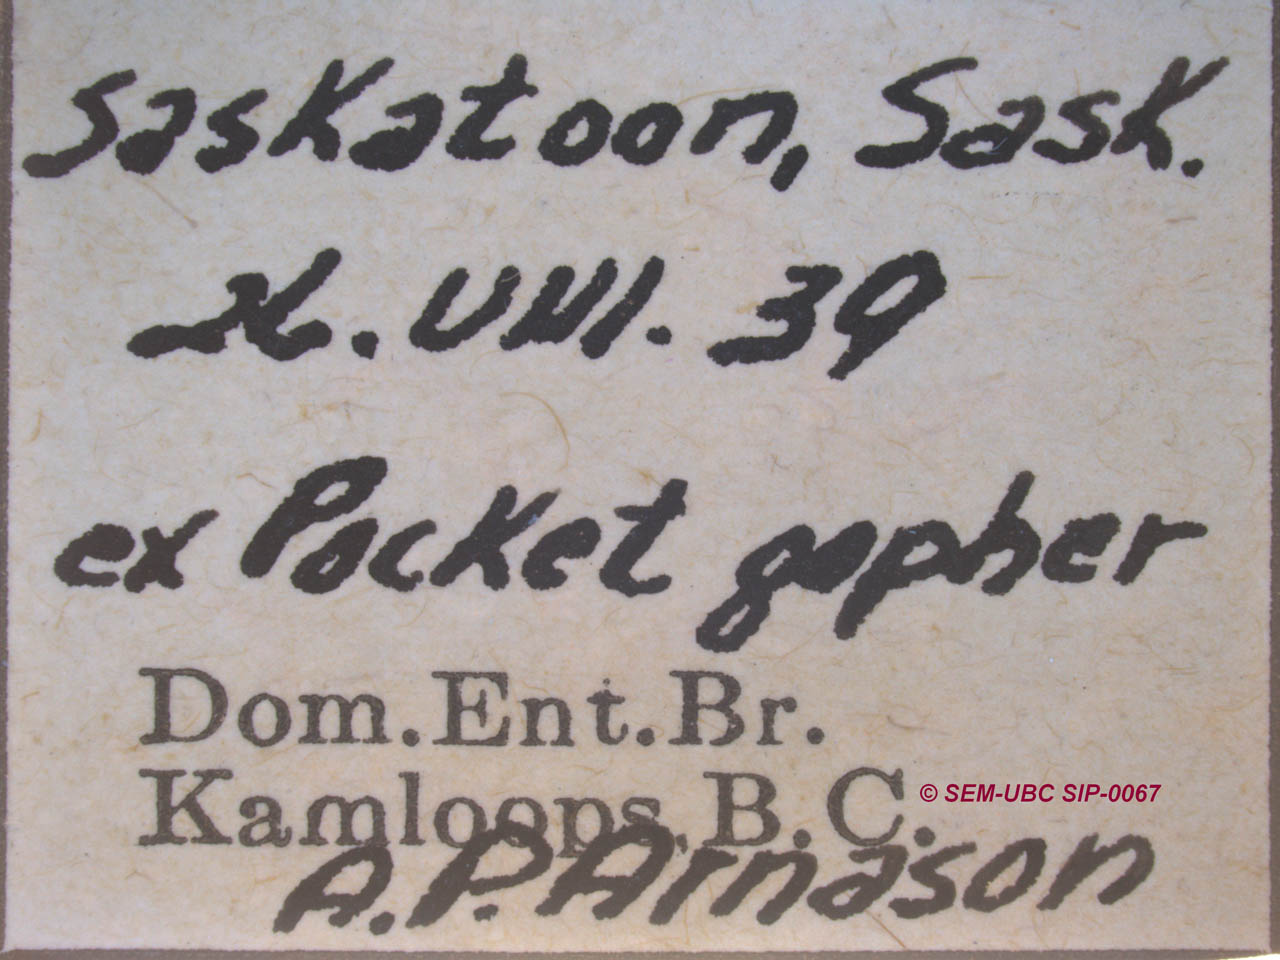 Saskatoon, Sask.
26.VIII.39
ex Pocket gopher
Dom.Ent.Br.
Kamloops, B.C.
© SEM-UBC SIP-0067
A.P. Arnason